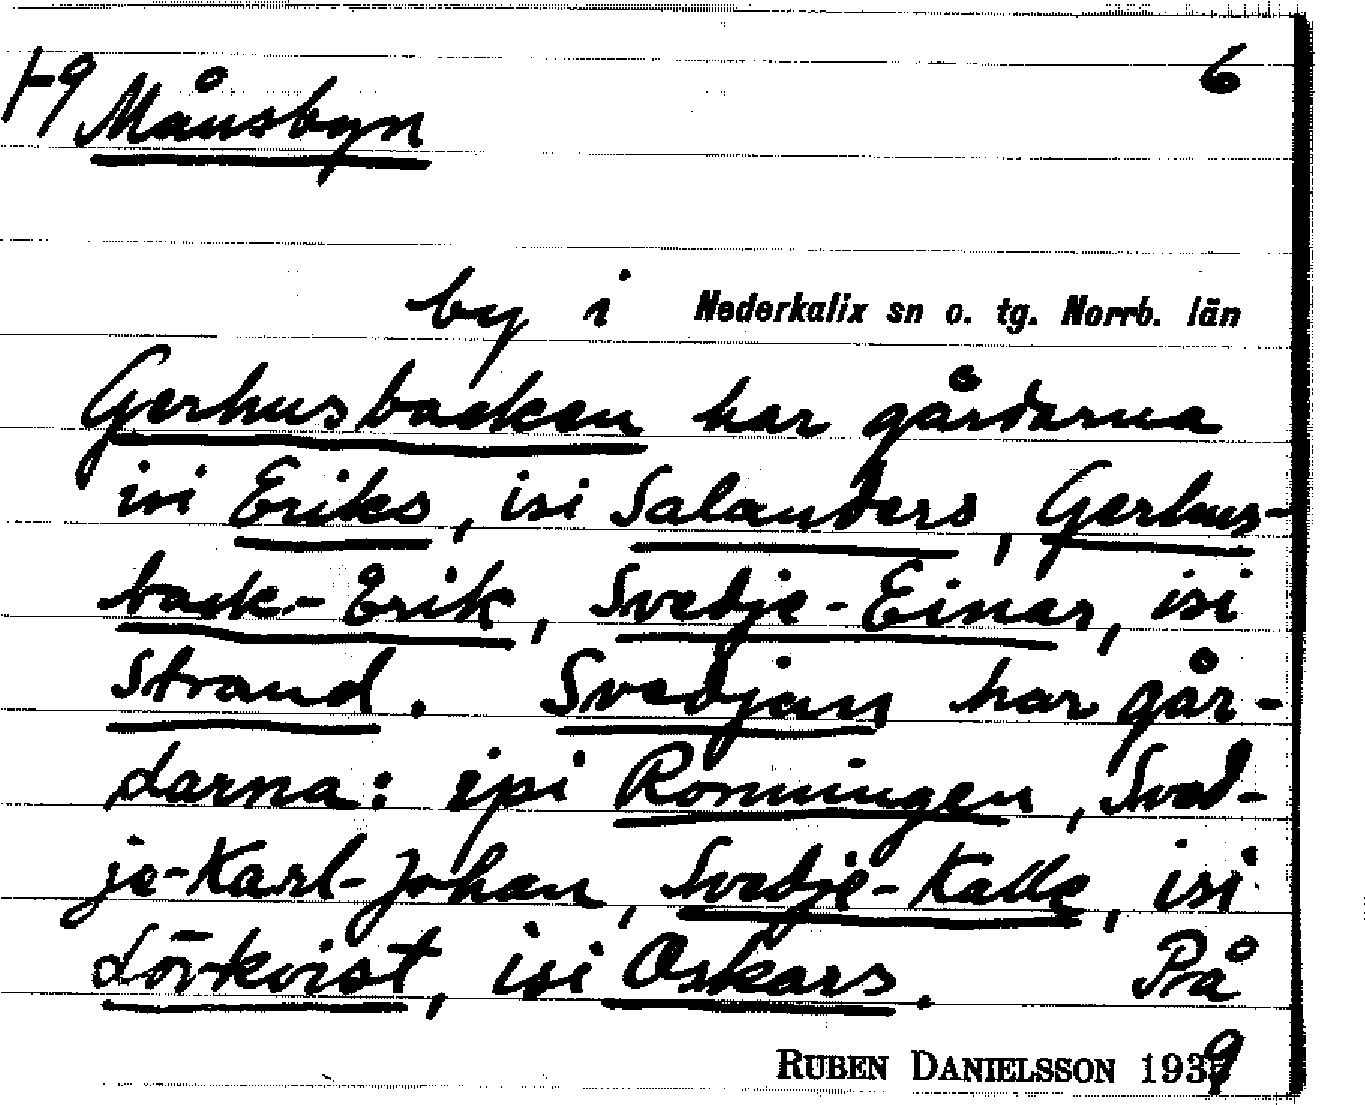 6
+9 Månsbyn
by i Nederkalix sn o. tg. Norrb. län
Gerhusbacken har gårdarna
isi Eriks, isi Salanders, Gerhus-
back-Erik, Svedje-Einar, isi
Strand. Svedjan har går-
darna: ipi Ronningen, Sved-
je-Karl-Johan, Svedje-Kalle, isi
Lövkvist, isi Oskars. På
RUBEN DANIELSSON 1939